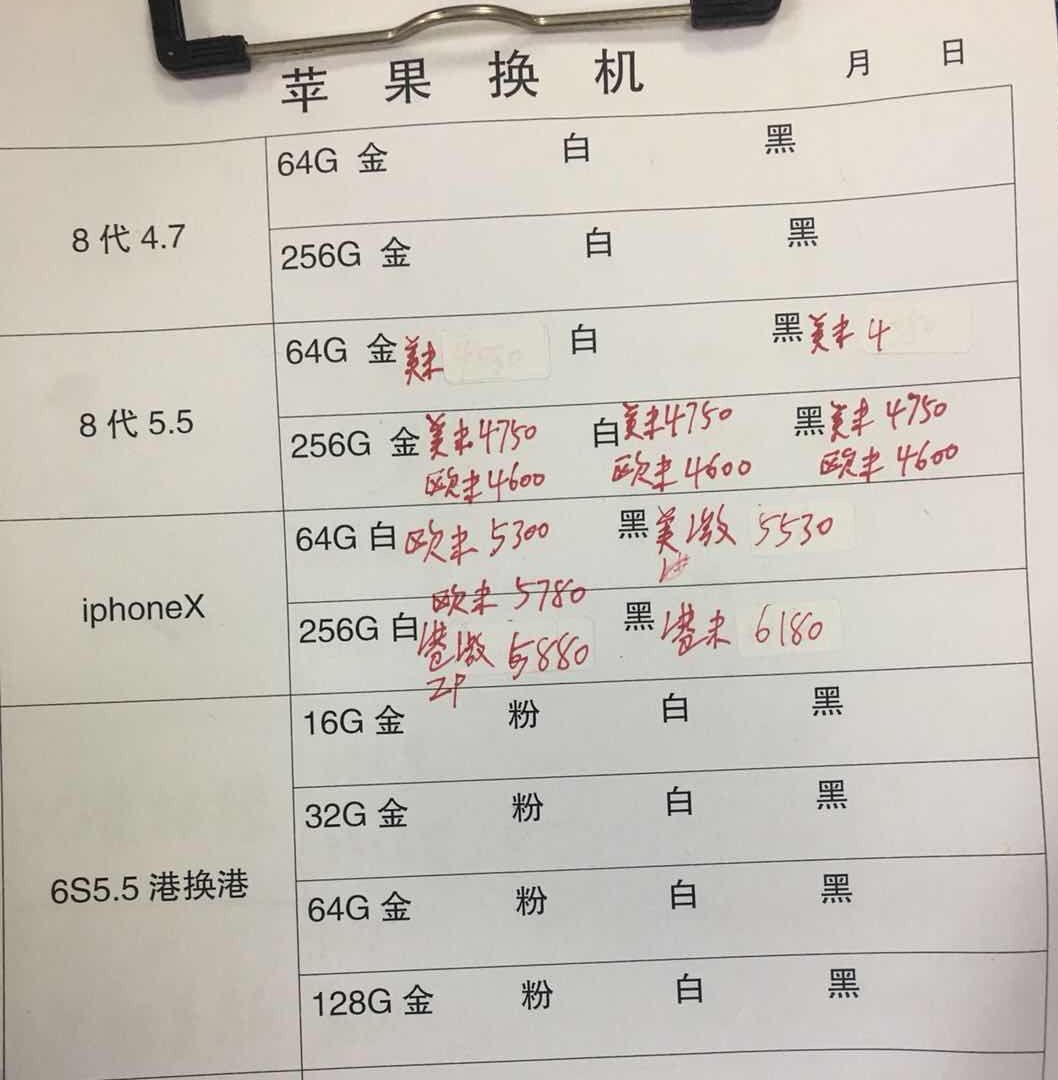 苹果换机 月 日
8代4.7
64G 金 白 黑
256G 金 白 黑
8代5.5
64G 金 美未 白 黑 美未 4
256G 金 美未4750 白 美未4750 黑 美未4750
欧未4600 欧未4600 欧未4600
iphoneX
64G 白 欧未 5300 黑 美激 5530
港
欧未 5780
256G 白 港激 5880 黑 港未 6180
ZP
6S5.5港换港
16G 金 粉 白 黑
32G 金 粉 白 黑
64G 金 粉 白 黑
128G 金 粉 白 黑